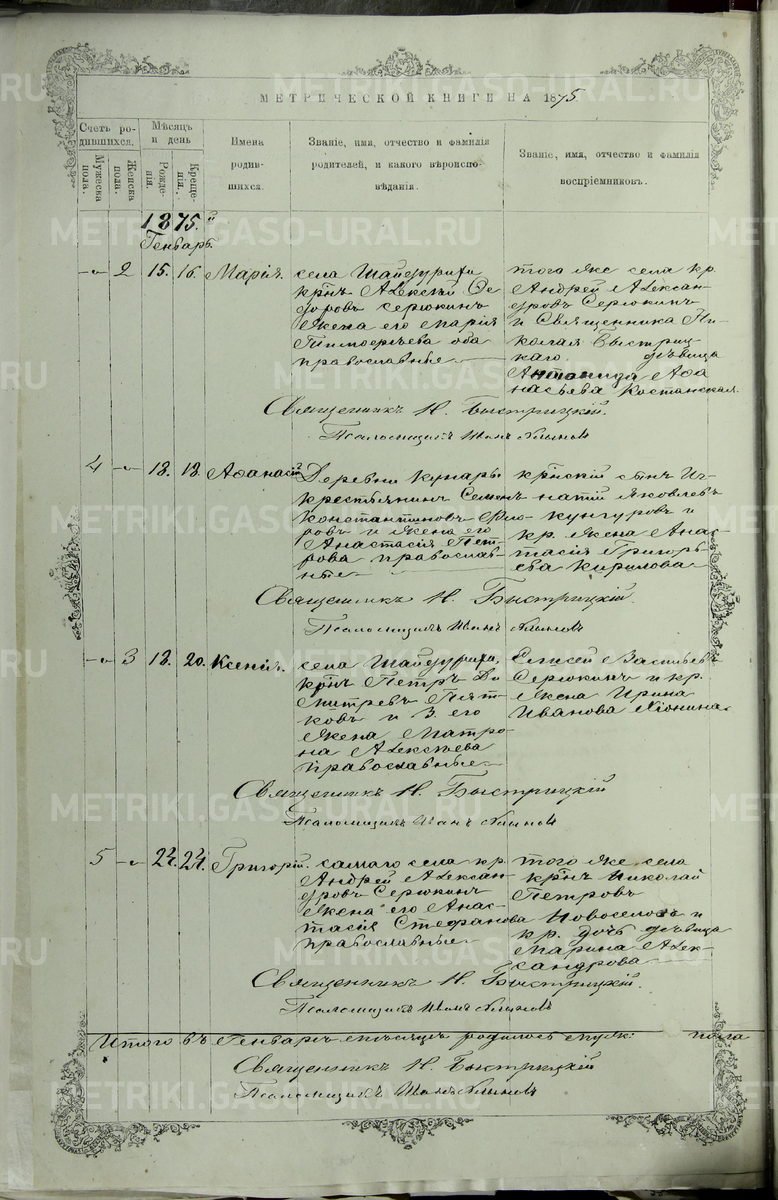 МЕТРИЧЕСКОЙ КНИГИ НА 1875
Счетъ ро-
дившихся.
Мужеска
пола.
Женска
пола.
Мѣсяцъ
и день
Рожде-
нія.
Креще-
нія.
Имена
родив-
шихся.
Званіе, имя, отчество и фамилія
родителей, и какого вѣроиспо-
вѣданія.
Званіе, имя, отчество и фамилія
воспріемниковъ.
1875.
Генварь.
2 15. 16. Марія.
села Шайдурихи
крⷭ҇нъ Алексѣй Ѳе
доровъ Серюкинъ
Жена его Марія
Тимофеева оба
православные
того же села кр.
Андрей Алексан-
дровъ Серюкинъ
и Священника Ни-
колая Быстриц-
каго дѣвица
Антонина Аѳа
насьева
Священникъ Н. Быстрицкій.
Псаломщикъ Иванъ
4 18. 18. Аѳанасій
Деревни Кунары
крестьянинъ Семенъ
Константиновъ
ровъ и жена его
Анастасія Пет-
рова православ-
ные
сынъ Иг-
натій Яковлевъ
Кунгуровъ и
кр. жена Анас
тасія Григорь
ева Кирилова
Священникъ Н. Быстрицкій.
Псаломщикъ Иванъ
3 18. 20. Ксенія.
села Шайдурихи,
крнъ Петръ Ди
митревъ Пят-
ковъ и З. его
Жена Матро
на Алексѣева
православные
Елисей Васильевъ
Серюкинъ и кр.
Жена Ирина
Иванова
Священникъ Н. Быстрицкій
Псаломщикъ Иванъ
5 24. Григорій.
самаго села кр.
Андрей Алексан-
дровъ Серюкинъ
Жена его Анас-
тасія Стефанова
православные
того же села
крⷭ҇нъ Николай
Петровъ
Новоселовъ и
кр. дочь дѣвица
Марина Алек-
сандрова
Священникъ Н. Быстрицкій.
Псаломщикъ Иванъ
Итого въ Генварѣ мѣсяцѣ родилось муж: пола
Священникъ Н. Быстрицкій
Псаломщикъ Иванъ
METRIKI.GASO-URAL.RU